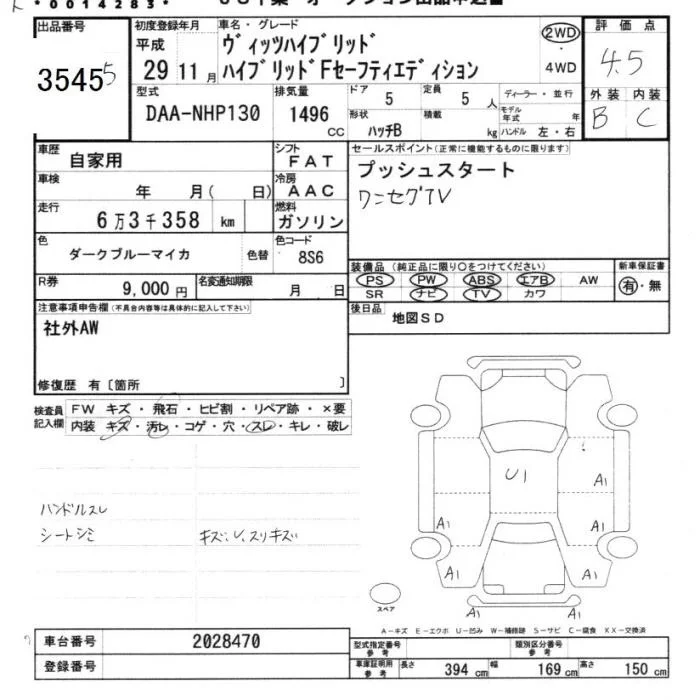 ・0014283・
出品番号 初度登録年月 車名・グレード 評価点
35455
平成 29 11月
ヴィッツハイブリッド
ハイブリッドFセーフティエディション
2WD
4WD
4.5
外装 内装
B C
型式 排気量 ドア 定員 ディーラー・並行
DAA-NHP130 1496 CC 5 5人
形状 積載 モデル年式 年
ハッチB kg ハンドル 左・右
車歴 自家用 シフト FAT
セールスポイント(正常に機能するものに限ります)
プッシュスタート
ワンセグTV
車検 年 月( 日) 冷房 AAC
走行 6万3千358 km 燃料 ガソリン
色 ダークブルーマイカ 色替 色コード 8S6
装備品(純正品に限り〇をつけてください) 新車保証書
PS PW ABS エアB AW 有・無
SR ナビ TV カワ
R券 9,000円 名変通知期限 月 日
後日品 地図SD
注意事項申告欄(不具合内容等は具体的に記入して下さい)
社外AW
修復歴 有〔箇所 〕
検査員記入欄
FW キズ・飛石・ヒビ割・リペア跡・×要
内装 キズ・汚レ・コゲ・穴・スレ・キレ・破レ
ハンドルスレ
シートシミ キズ、U、スリキズ
U1
A1
A1 A1
A1 A1
A1 A1
スペア
A-キズ E-エクボ U-凹み W-補修跡 S-サビ C-腐食 XX-交換済
車台番号 2028470
型式指定番号 参考 類別区分番号 参考
登録番号
車庫証明用 参考 長さ 394cm 幅 169cm 高さ 150cm